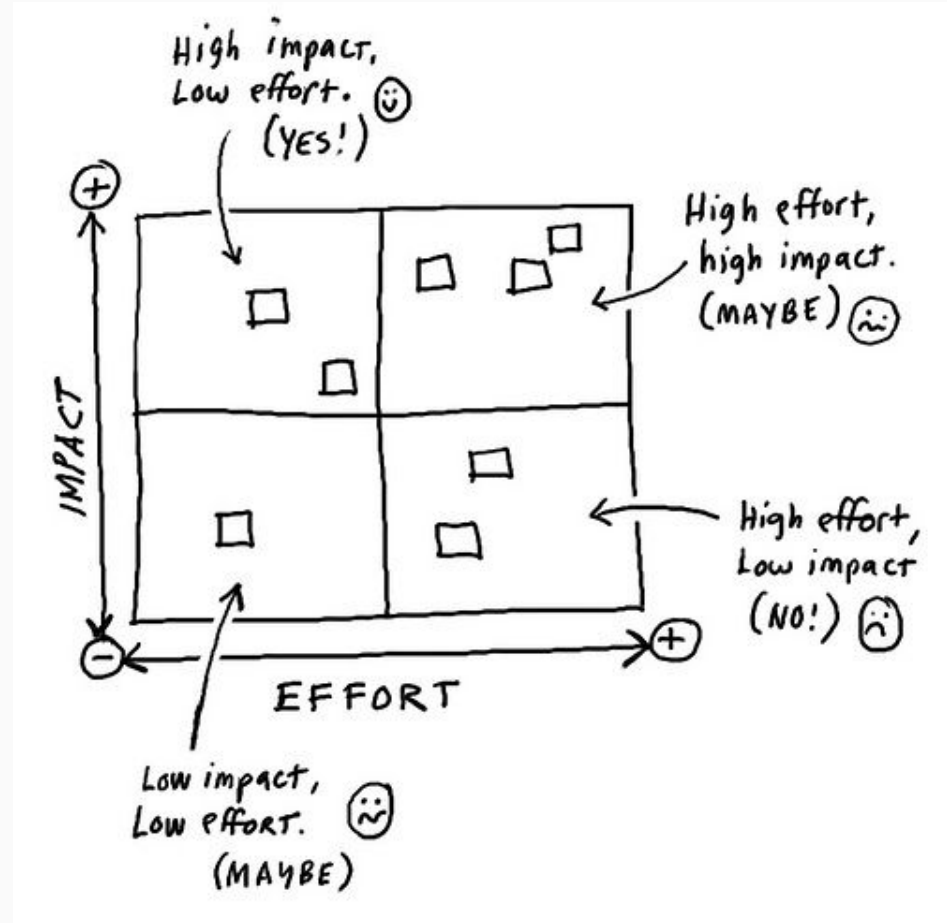 High impact,
Low effort.
(YES!)
+
High effort,
high impact.
(MAYBE)
IMPACT
High effort,
Low impact
(NO!)
-
+
EFFORT
Low impact,
Low effort.
(MAYBE)